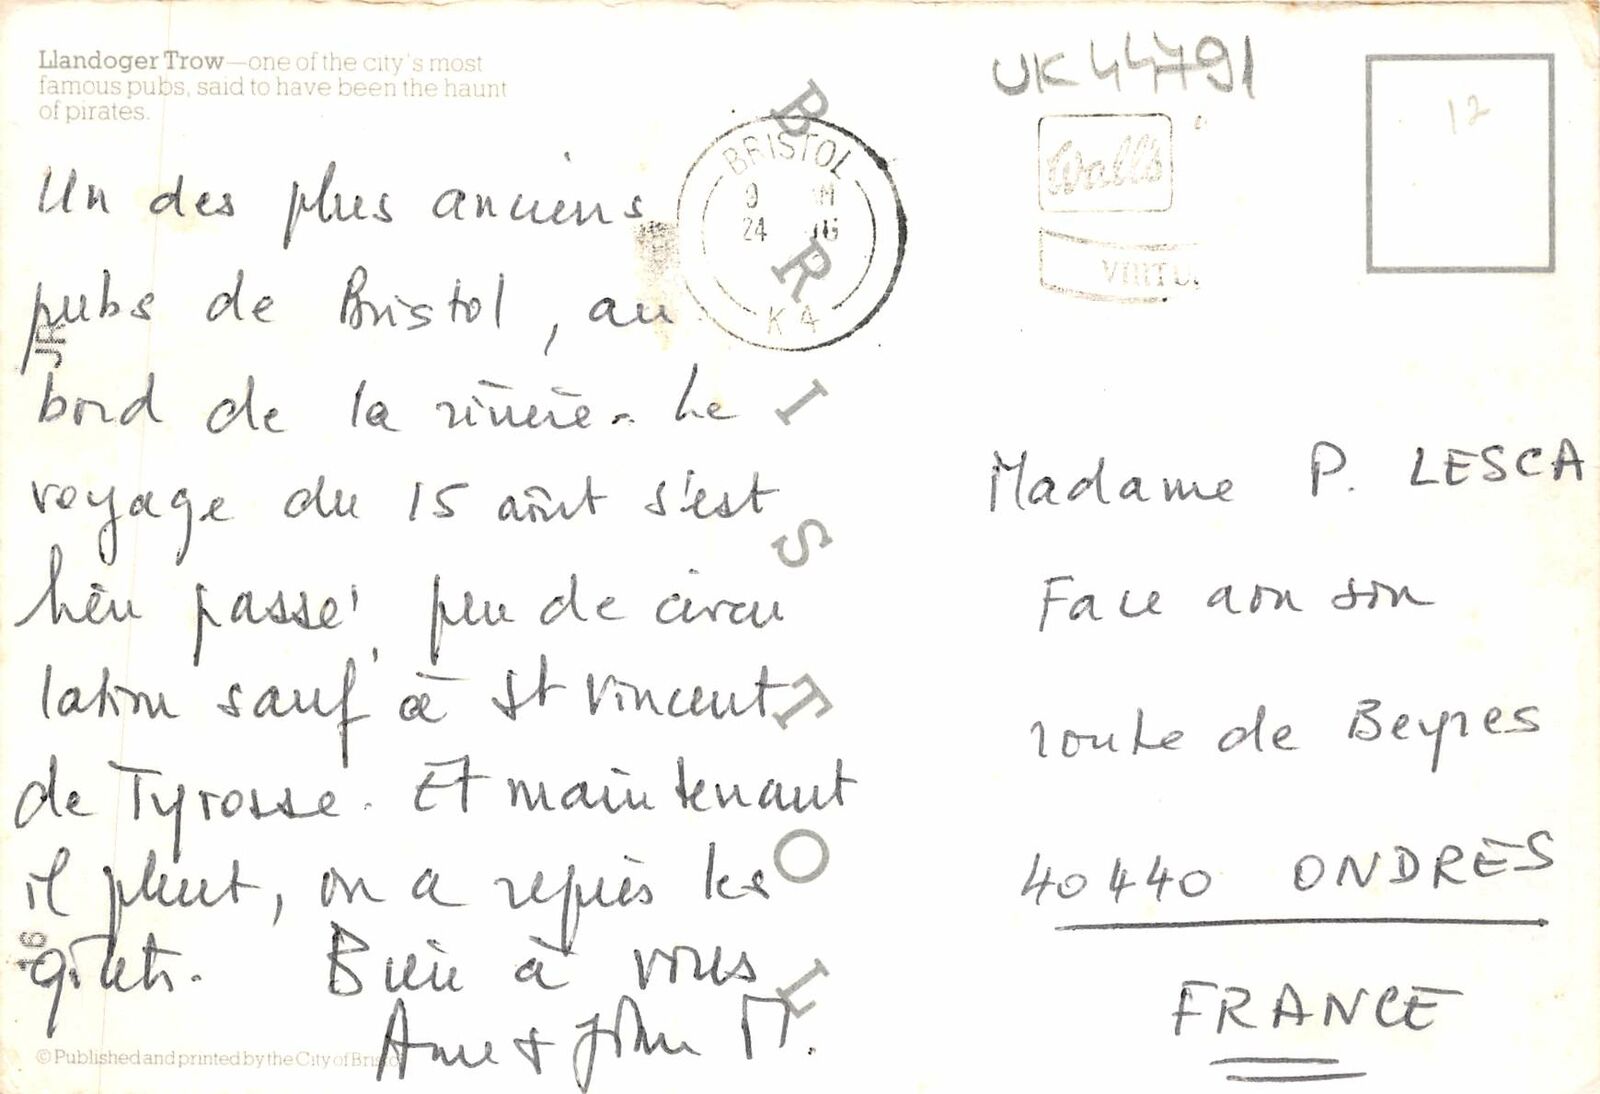 Llandoger Trow—one of the city's most
famous pubs, said to have been the haunt
of pirates.
UK44791
12
BRISTOL
24
K4
Wall's
Un des plus anciens
pubs de Bristol, au
bord de la rivière. Le
voyage du 15 août s'est
bien passé, peu de circu
lation sauf à St Vincent
de Tyrosse. Et maintenant
il pleut, on a repris les
gilets. Bien à vous
Anne + John M.
Madame P. LESCA
Face
route de Beyres
40440 ONDRES
FRANCE
BRISTOL
JR
16
© Published and printed by the City of Bristol